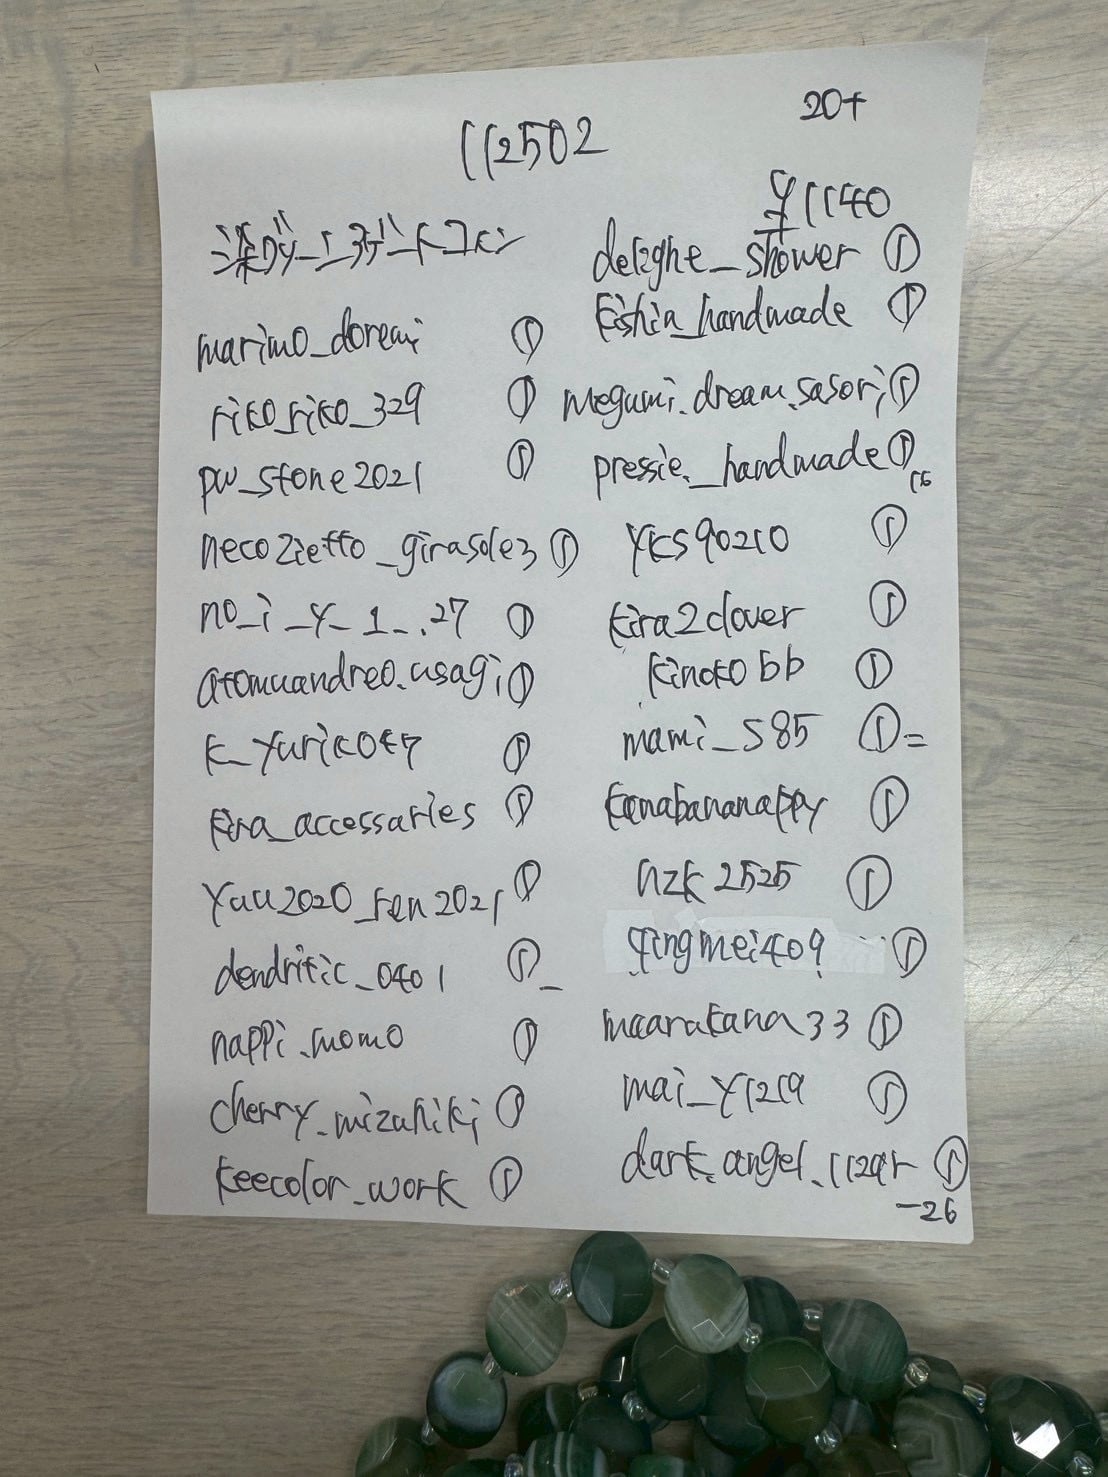 112502
20+
¥1140
marimo_doremi ①
riko_riko_329 ①
pw_stone2021 ①
necozietto_girasole3 ①
no_i_y_1_.27 ①
atomuandreo.usagi ①
k_yuriko47 ①
kira_accessaries ①
yuu2020_ren2021 ①
dendritic_0401 ①_
nappi.momo ①
cherry_mizuhiki ①
keecolor_work ①
delighe_shower ①
kishin_handmade ①
megumi.dream.sasori ①
pressie._handmade ①
16
yks90210 ①
kira2clover ①
kinokobb ①
mami_s85 ①=
kanabananappy ①
nzk2525 ①
qingmei409 ①
maarakana33 ①
mai_y1219 ①
dark.angel. ①
-26